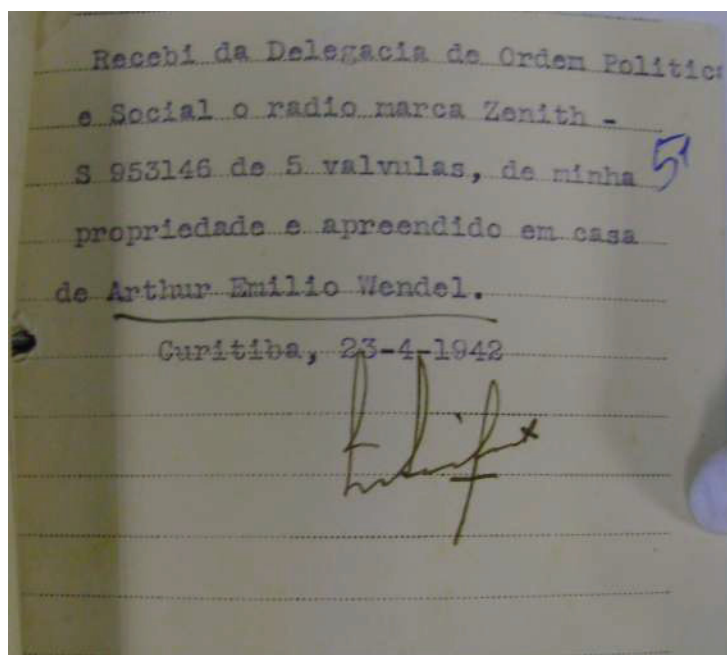 Recebi da Delegacia de Ordem Politica
e Social o radio marca Zenith -
S 953146 de 5 valvulas, de minha
propriedade e apreendido em casa
de Arthur Emilio Wendel.
Curitiba, 23-4-1942